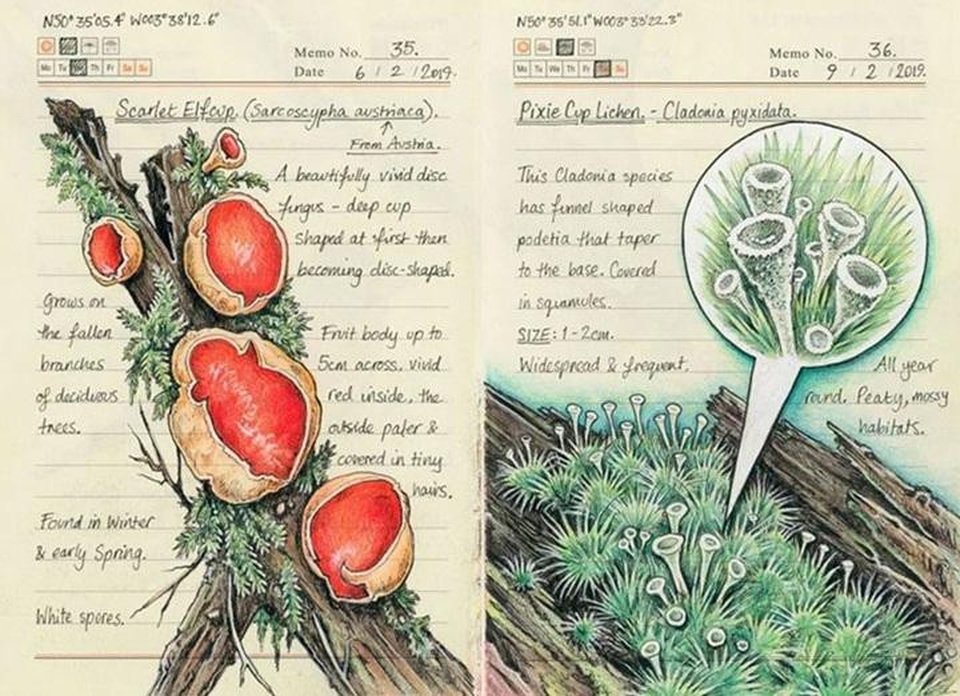 N50°35'05.4" W003°38'12.6"
Mo Tu Th Fr Sa Su
Memo No. 35.
Date 6 / 2 / 2019.
Scarlet Elfcup. (Sarcoscypha austriaca).
From Austria.
A beautifully vivid disc
fungus - deep cup
shaped at first then
becoming disc-shaped.
Grows on
the fallen
branches
of deciduous
trees.
Fruit body up to
5cm across, vivid
red inside, the
outside paler &
covered in tiny
hairs.
Found in Winter
& early Spring.
White spores.
N50°35'51.1" W003°33'22.3"
Mo Tu We Th Fr Su
Memo No. 36.
Date 9 / 2 / 2019.
Pixie Cup Lichen. - Cladonia pyxidata.
This Cladonia species
has funnel shaped
podetia that taper
to the base. Covered
in squamules.
SIZE: 1-2cm.
Widespread & frequent.
All year
round. Peaty, mossy
habitats.